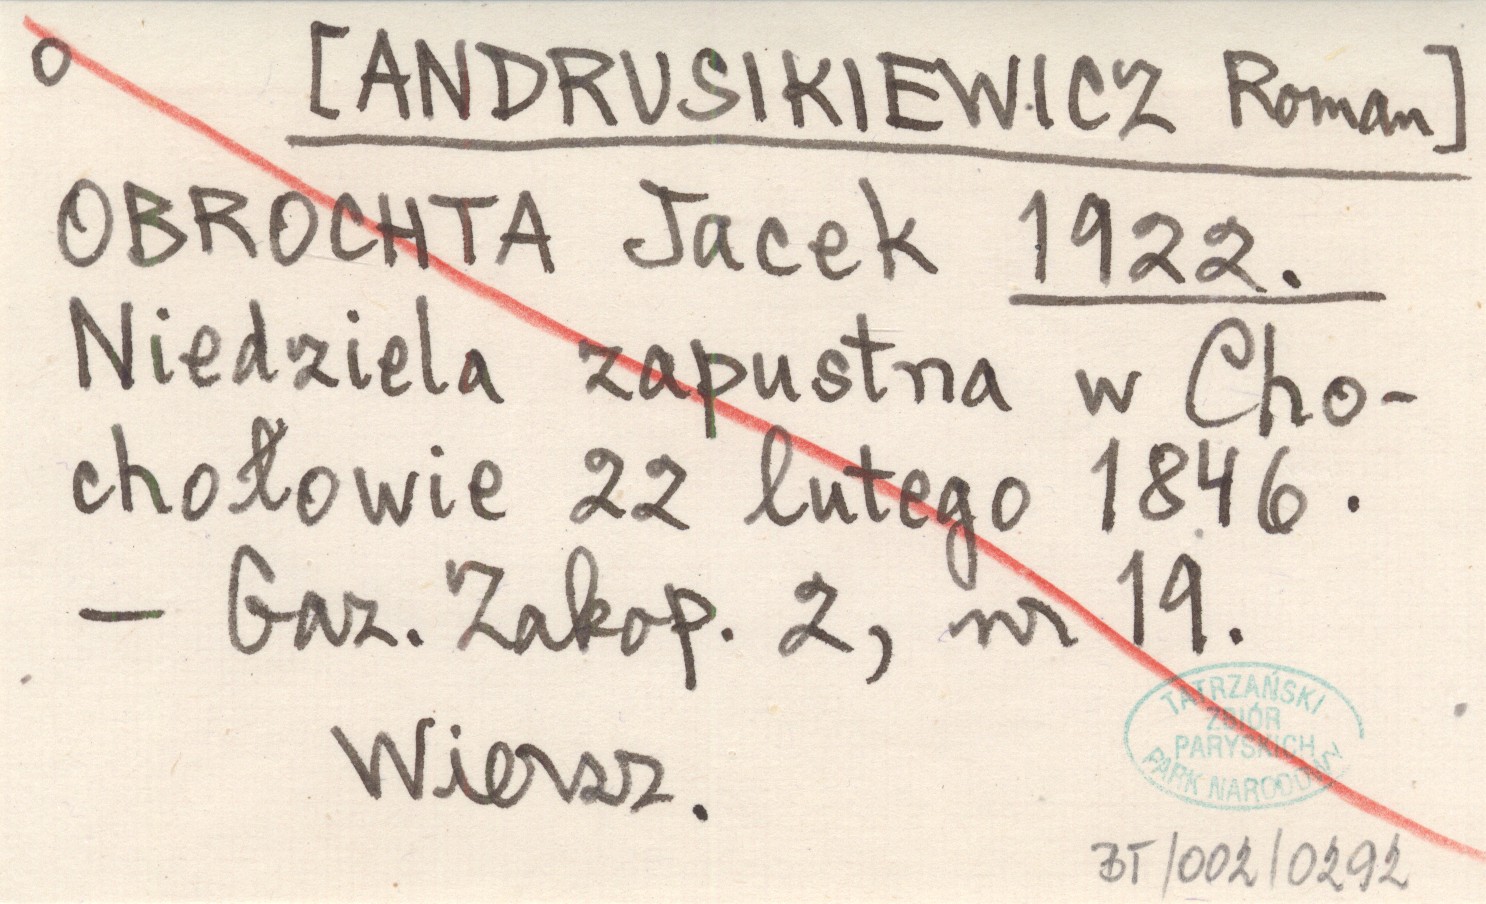 o [ANDRUSIKIEWICZ Roman]
OBROCHTA Jacek 1922.
Niedziela zapustna w Cho-
chołowie 22 lutego 1846.
— Gaz. Zakop. 2, nr 19.
Wiersz.
TATRZAŃSKI
ZBIÓR
PARYSKICH
PARK NARODOWY
BT/002/0292